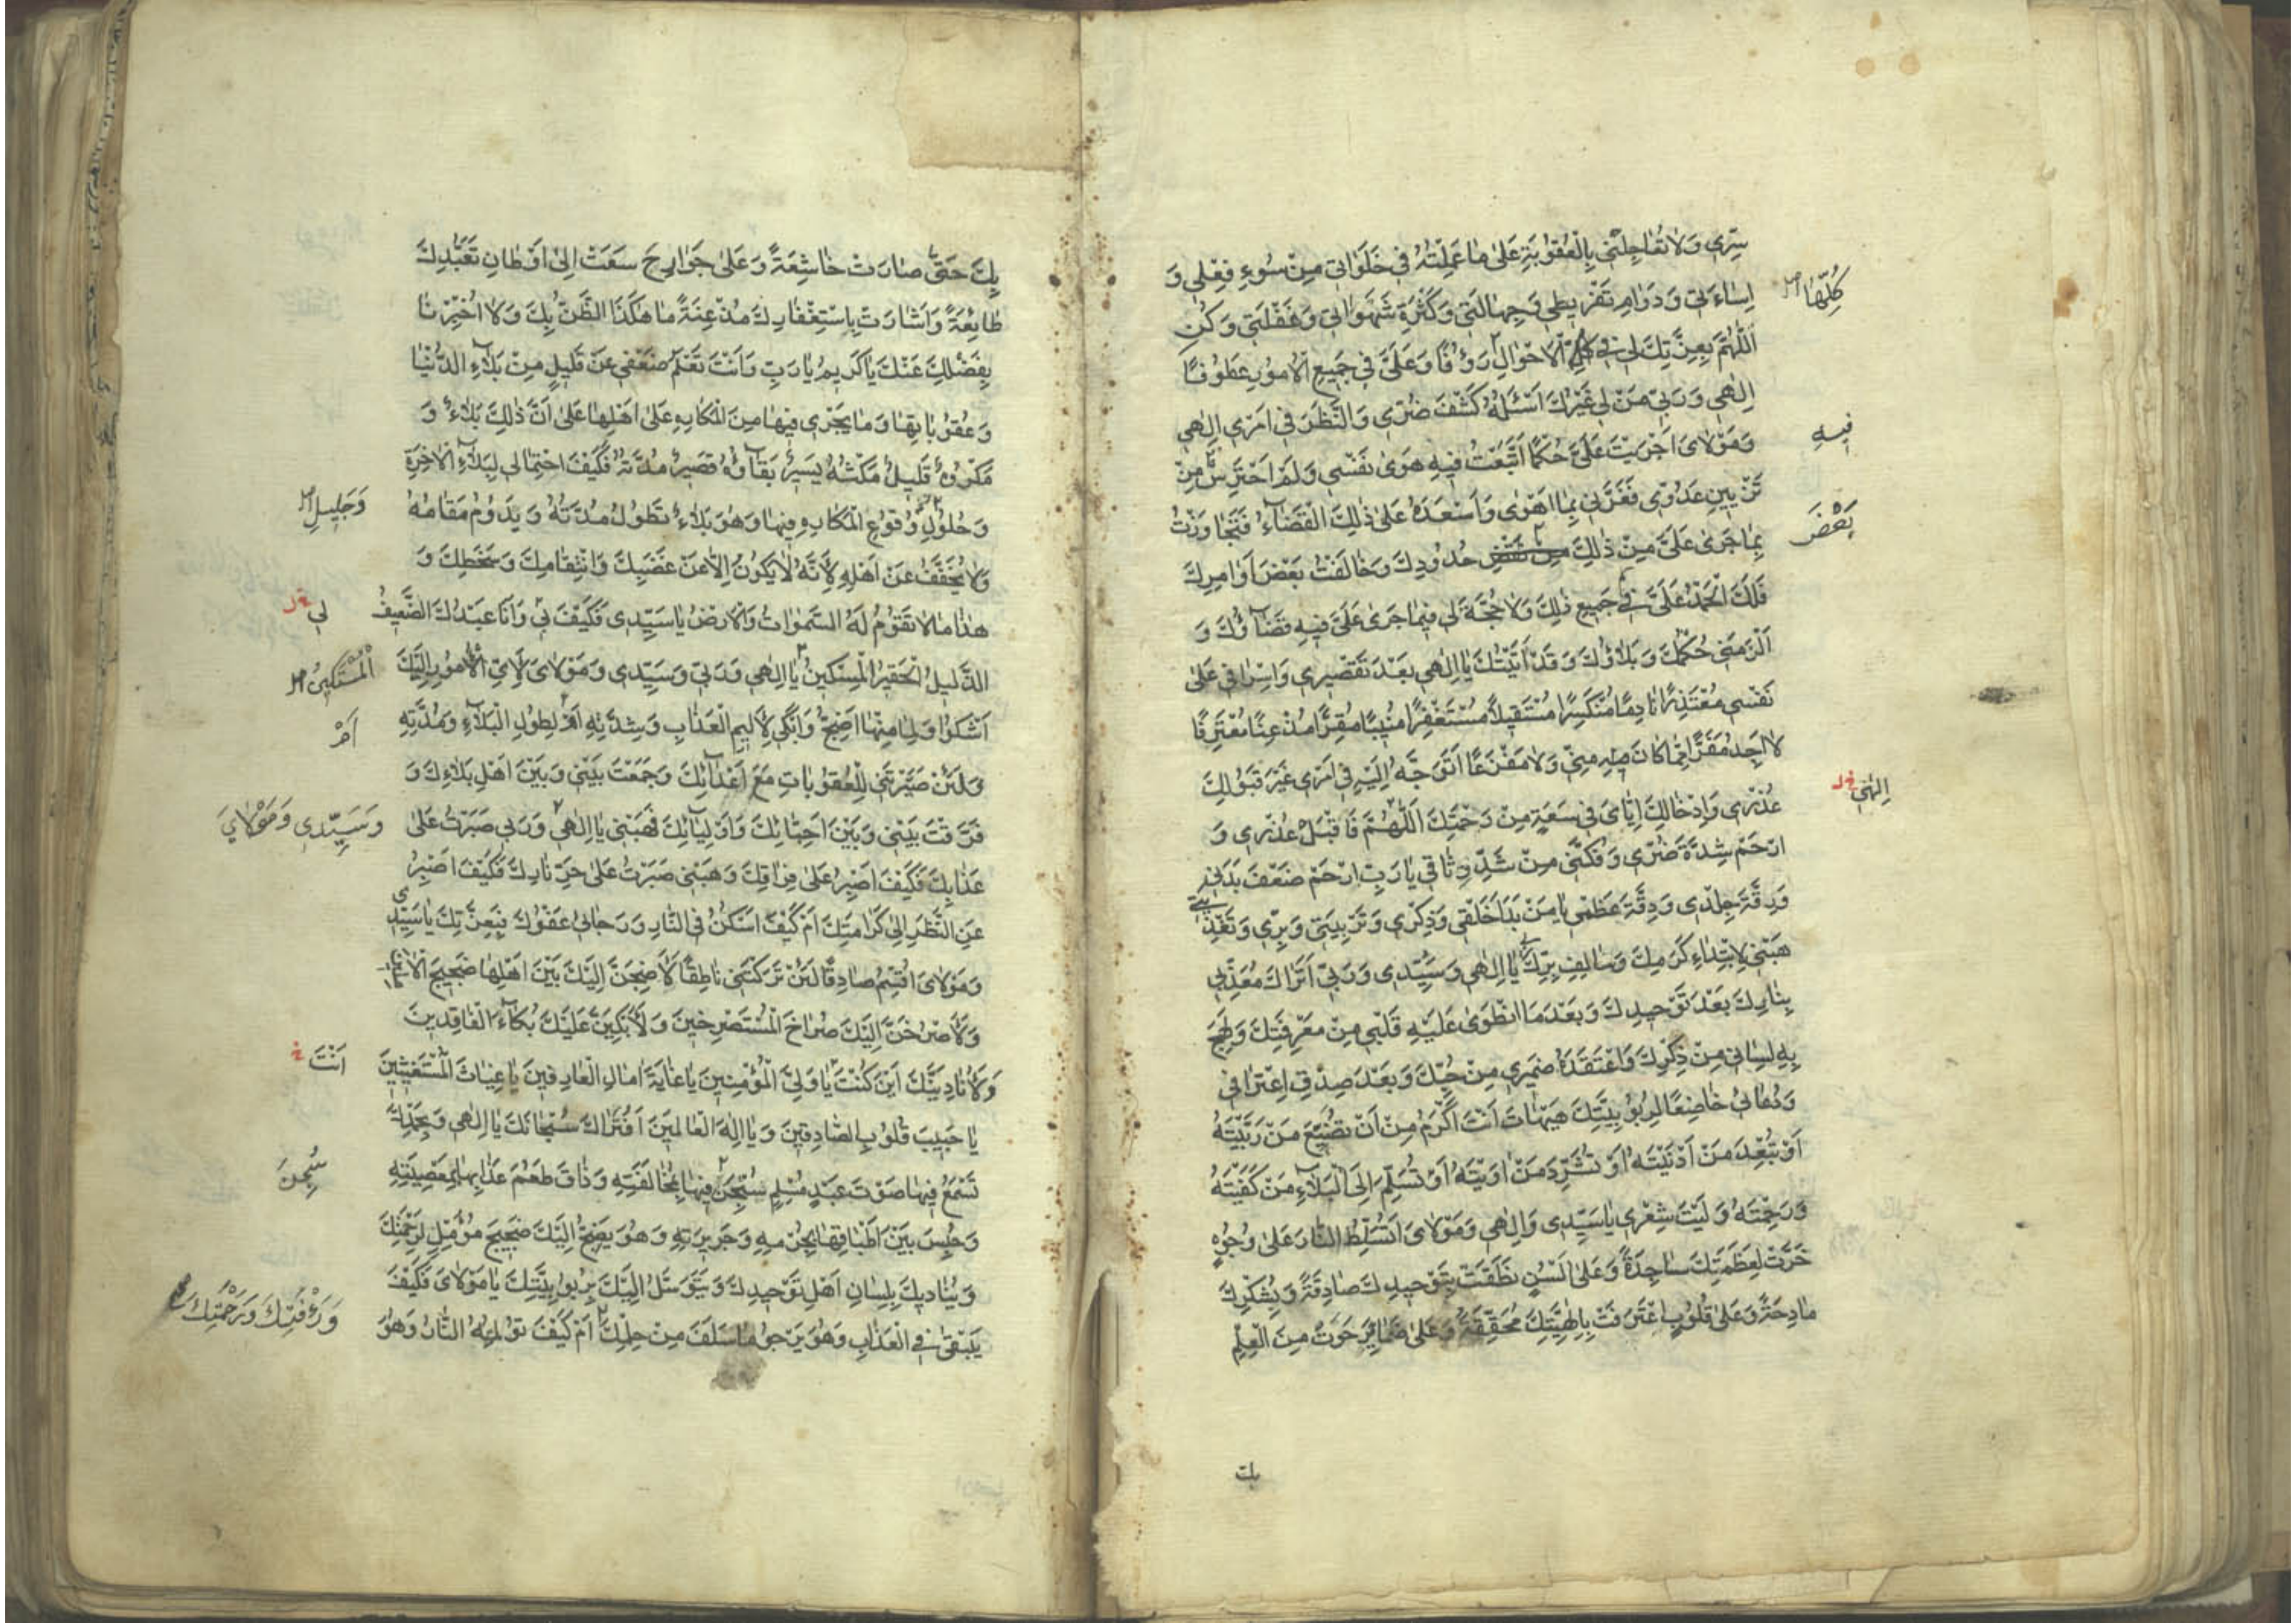 سِرّي وَلا تُعاجِلْني بِالْعُقوُبَةِ عَلىٰ ما عَمِلْتُهُ في خَلَواتي مِنْ سُوءِ فِعْلي وَ
كُلِّهٰا صح
اِساءَتي وَدَوامِ تَفْريطي وَجِهالَتي وَكَثْرَةِ شَهَواتي وَغَفْلَتي وَكُنِ
اَللّٰهُمَّ بِعِزَّتِكَ لي في الْاَحْوالِ رَؤُفًا وَعَلَيَّ في جَميعِ الْاُموُرِ عَطوُفًا
اِلٰهي وَرَبّي مَنْ لي غَيْرُكَ اَسْئَلُهُ كَشْفَ ضُرّي وَالنَّظَرَ في اَمْري اِلٰهي
فيهِ
وَمَوْلايَ اَجْرَيْتَ عَلَيَّ حُكْمًا اتَّبَعْتُ فيهِ هَوىٰ نَفْسي وَلَمْ اَحْتَرِسْ مِنْ
تَزْيينِ عَدُوّي فَغَرَّني بِما اَهْوىٰ وَاَسْعَدَهُ عَلىٰ ذٰلِكَ الْقَضآءُ فَتَجاوَزْتُ
بَعْضَ
بِما جَرىٰ عَلَيَّ مِنْ ذٰلِكَ مِنْ نَقْضِ حُدوُدِكَ وَخالَفْتُ بَعْضَ اَوامِرِكَ
فَلَكَ الْحَمْدُ عَلَيَّ في جَميعِ ذٰلِكَ وَلا حُجَّةَ لي فيما جَرىٰ عَلَيَّ فيهِ قَضآؤُكَ وَ
اَلْزَمَني حُكْمُكَ وَبَلاؤُكَ وَقَدْ اَتَيْتُكَ يا اِلٰهي بَعْدَ تَقْصيري وَاِسْرافي عَلىٰ
نَفْسي مُعْتَذِرًا نادِمًا مُنْكَسِرًا مُسْتَقيلاً مُسْتَغْفِرًا مُنيبًا مُقِرًّا مُذْعِنًا مُعْتَرِفًا
لا اَجِدُ مَفَرًّا مِمّا كانَ مِنّي وَلا مَفْزَعًا اَتَوَجَّهُ اِلَيْهِ في اَمْري غَيْرَ قَبوُلِكَ
اِلٰهي خ ل
عُذْري وَاِدْخالِكَ اِيّايَ في سَعَةٍ مِنْ رَحْمَتِكَ اَللّٰهُمَّ فَاقْبَلْ عُذْري وَ
ارْحَمْ شِدَّةَ ضُرّي وَفُكَّني مِنْ شَدِّ وِثاقي يا رَبِّ ارْحَمْ ضَعْفَ بَدَني
وَرِقَّةَ جِلْدي وَدِقَّةَ عَظْمي يا مَنْ بَدَاَ خَلْقي وَذِكْري وَتَرْبِيَتي وَبِرّي وَتَغْذِيَتي
هَبْني لِابْتِداءِ كَرَمِكَ وَسالِفِ بِرِّكَ يا اِلٰهي وَسَيِّدي وَرَبّي اَتَراكَ مُعَذِّبي
بِنارِكَ بَعْدَ تَوْحيدِكَ وَبَعْدَ مَا انْطَوىٰ عَلَيْهِ قَلْبي مِنْ مَعْرِفَتِكَ وَلَهِجَ
بِهِ لِساني مِنْ ذِكْرِكَ وَاعْتَقَدَهُ ضَميري مِنْ حُبِّكَ وَبَعْدَ صِدْقِ اعْتِرافي
وَدُعائي خاضِعًا لِرُبوُبِيَّتِكَ هَيْهاتَ اَنْتَ اَكْرَمُ مِنْ اَنْ تُضَيِّعَ مَنْ رَبَّيْتَهُ
اَوْ تُبْعِدَ مَنْ اَدْنَيْتَهُ اَوْ تُشَرِّدَ مَنْ اٰوَيْتَهُ اَوْ تُسَلِّمَ اِلَى الْبَلآءِ مَنْ كَفَيْتَهُ
وَرَحِمْتَهُ وَلَيْتَ شِعْري يا سَيِّدي وَاِلٰهي وَمَوْلايَ اَتُسَلِّطُ النّارَ عَلىٰ وُجوُهٍ
خَرَّتْ لِعَظَمَتِكَ ساجِدَةً وَعَلىٰ اَلْسُنٍ نَطَقَتْ بِتَوْحيدِكَ صادِقَةً وَبِشُكْرِكَ
مادِحَةً وَعَلىٰ قُلوُبٍ اعْتَرَفَتْ بِاِلٰهِيَّتِكَ مُحَقِّقَةً وَعَلىٰ ضَمائِرَ حَوَتْ مِنَ الْعِلْمِ
بك
بِكَ حَتّىٰ صارَتْ خاشِعَةً وَعَلىٰ جَوارِحَ سَعَتْ اِلىٰ اَوْطانِ تَعَبُّدِكَ
طائِعَةً وَاَشارَتْ بِاسْتِغْفارِكَ مُذْعِنَةً ما هٰكَذَا الظَّنُّ بِكَ وَلا اُخْبِرْنا
بِفَضْلِكَ عَنْكَ يا كَريمُ يا رَبِّ وَاَنْتَ تَعْلَمُ ضَعْفي عَنْ قَليلٍ مِنْ بَلآءِ الدُّنْيا
وَعُقوُباتِها وَما يَجْري فيها مِنَ الْمَكارِهِ عَلىٰ اَهْلِها عَلىٰ اَنَّ ذٰلِكَ بَلاءٌ وَ
مَكْروُهٌ قَليلٌ مَكْثُهُ يَسيرٌ بَقآؤُهُ قَصيرٌ مُدَّتُهُ فَكَيْفَ احْتِمالي لِبَلآءِ الْاٰخِرَةِ
وَجَليلِ صح
وَحُلوُلِ وُقوُعِ الْمَكارِهِ فيها وَهُوَ بَلاءٌ تَطوُلُ مُدَّتُهُ وَيَدوُمُ مَقامُهُ
وَلا يُخَفَّفُ عَنْ اَهْلِهِ لِاَنَّهُ لا يَكوُنُ اِلاّ عَنْ غَضَبِكَ وَانْتِقامِكَ وَسَخَطِكَ وَ
لي خ ل
هٰذا ما لا تَقوُمُ لَهُ السَّمٰواتُ وَالْاَرْضُ يا سَيِّدي فَكَيْفَ بي وَاَنَا عَبْدُكَ الضَّعيفُ
اَلْمُسْتَكينُ صح
الذَّليلُ الْحَقيرُ الْمِسْكينُ يا اِلٰهي وَرَبّي وَسَيِّدي وَمَوْلايَ لِاَيِّ الْاُموُرِ اِلَيْكَ
اَمْ
اَشْكوُا وَلِما مِنْها اَضِجُّ وَاَبْكي لِاَليمِ الْعَذابِ وَشِدَّتِهِ اَمْ لِطوُلِ الْبَلآءِ وَمُدَّتِهِ
وَلَئِنْ صَيَّرْتَني لِلْعُقوُباتِ مَعَ اَعْدآئِكَ وَجَمَعْتَ بَيْني وَبَيْنَ اَهْلِ بَلاءِكَ وَ
وَسَيِّدي وَمَوْلايَ
فَرَّقْتَ بَيْني وَبَيْنَ اَحِبّائِكَ وَاَوْلِيآئِكَ فَهَبْني يا اِلٰهي وَرَبّي صَبَرْتُ عَلىٰ
عَذابِكَ فَكَيْفَ اَصْبِرُ عَلىٰ فِراقِكَ وَهَبْني صَبَرْتُ عَلىٰ حَرِّ نارِكَ فَكَيْفَ اَصْبِرُ
عَنِ النَّظَرِ اِلىٰ كَرامَتِكَ اَمْ كَيْفَ اَسْكُنُ فِي النّارِ وَرَجائي عَفْوُكَ فَبِعِزَّتِكَ يا سَيِّدي
وَمَوْلايَ اُقْسِمُ صادِقًا لَئِنْ تَرَكْتَني ناطِقًا لَاَضِجَّنَّ اِلَيْكَ بَيْنَ اَهْلِها ضَجيجَ الْاٰمِلينَ
وَلَاَصْرُخَنَّ اِلَيْكَ صُراخَ الْمُسْتَصْرِخينَ وَلَاَبْكِيَنَّ عَلَيْكَ بُكآءَ الْفاقِدينَ
اَنْتَ خ
وَلَاُنادِيَنَّكَ اَيْنَ كُنْتَ يا وَلِيَّ الْمُؤْمِنينَ يا غايَةَ اٰمالِ الْعارِفينَ يا غِياثَ الْمُسْتَغيثينَ
يا حَبيبَ قُلوُبِ الصّادِقينَ وَيا اِلٰهَ الْعالَمينَ اَفَتُراكَ سُبْحانَكَ يا اِلٰهي وَبِحَمْدِكَ
سُجِنَ
تَسْمَعُ فيها صَوْتَ عَبْدٍ مُسْلِمٍ سُجِنَ فيها بِمُخالَفَتِهِ وَذاقَ طَعْمَ عَذابِها بِمَعْصِيَتِهِ
وَحُبِسَ بَيْنَ اَطْباقِها بِجُرْمِهِ وَجَريرَتِهِ وَهُوَ يَضِجُّ اِلَيْكَ ضَجيجَ مُؤَمِّلٍ لِرَحْمَتِكَ
وَيُناديكَ بِلِسانِ اَهْلِ تَوْحيدِكَ وَيَتَوَسَّلُ اِلَيْكَ بِرُبوُبِيَّتِكَ يا مَوْلايَ فَكَيْفَ
وَرَأْفَتِكَ وَرَحْمَتِكَ
يَبْقىٰ فِي الْعَذابِ وَهُوَ يَرْجوُ ما سَلَفَ مِنْ حِلْمِكَ اَمْ كَيْفَ تُؤْلِمُهُ النّارُ وَهُوَ